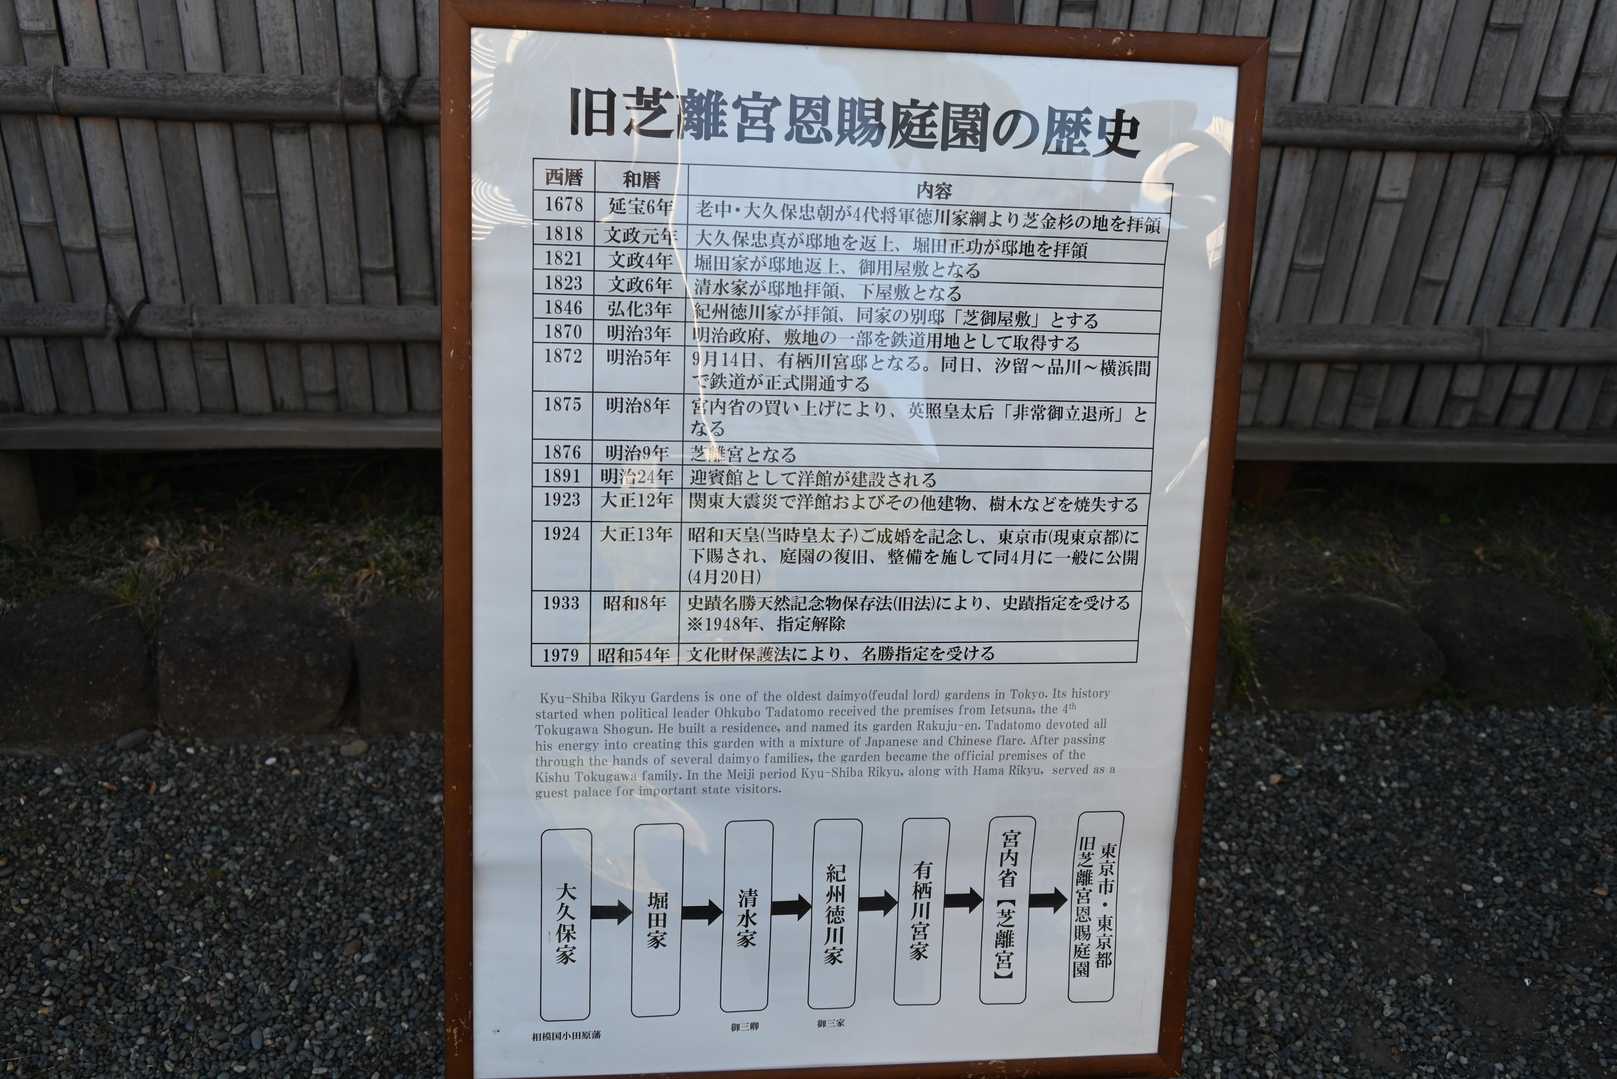 旧芝離宮恩賜庭園の歴史
西暦 和暦 内容
1678 延宝6年 老中・大久保忠朝が4代将軍徳川家綱より芝金杉の地を拝領
1818 文政元年 大久保忠真が邸地を返上、堀田正功が邸地を拝領
1821 文政4年 堀田家が邸地返上、御用屋敷となる
1823 文政6年 清水家が邸地拝領、下屋敷となる
1846 弘化3年 紀州徳川家が拝領、同家の別邸「芝御屋敷」とする
1870 明治3年 明治政府、敷地の一部を鉄道用地として取得する
1872 明治5年 9月14日、有栖川宮邸となる。同日、汐留～品川～横浜間
で鉄道が正式開通する
1875 明治8年 宮内省の買い上げにより、英照皇太后「非常御立退所」と
なる
1876 明治9年 芝離宮となる
1891 明治24年 迎賓館として洋館が建設される
1923 大正12年 関東大震災で洋館およびその他建物、樹木などを焼失する
1924 大正13年 昭和天皇(当時皇太子)ご成婚を記念し、東京市(現東京都)に
下賜され、庭園の復旧、整備を施して同4月に一般に公開
(4月20日)
1933 昭和8年 史蹟名勝天然記念物保存法(旧法)により、史蹟指定を受ける
※1948年、指定解除
1979 昭和54年 文化財保護法により、名勝指定を受ける
Kyu-Shiba Rikyu Gardens is one of the oldest daimyo(feudal lord) gardens in Tokyo. Its history
started when political leader Ohkubo Tadatomo received the premises from Ietsuna, the 4th
Tokugawa Shogun. He built a residence, and named its garden Rakuju-en. Tadatomo devoted all
his energy into creating this garden with a mixture of Japanese and Chinese flare. After passing
through the hands of several daimyo families, the garden became the official premises of the
Kishu Tokugawa family. In the Meiji period Kyu-Shiba Rikyu, along with Hama Rikyu, served as a
guest palace for important state visitors.
大久保家
堀田家
清水家
紀州徳川家
有栖川宮家
宮内省【芝離宮】
東京市・東京都
旧芝離宮恩賜庭園
相模国小田原藩
御三卿
御三家